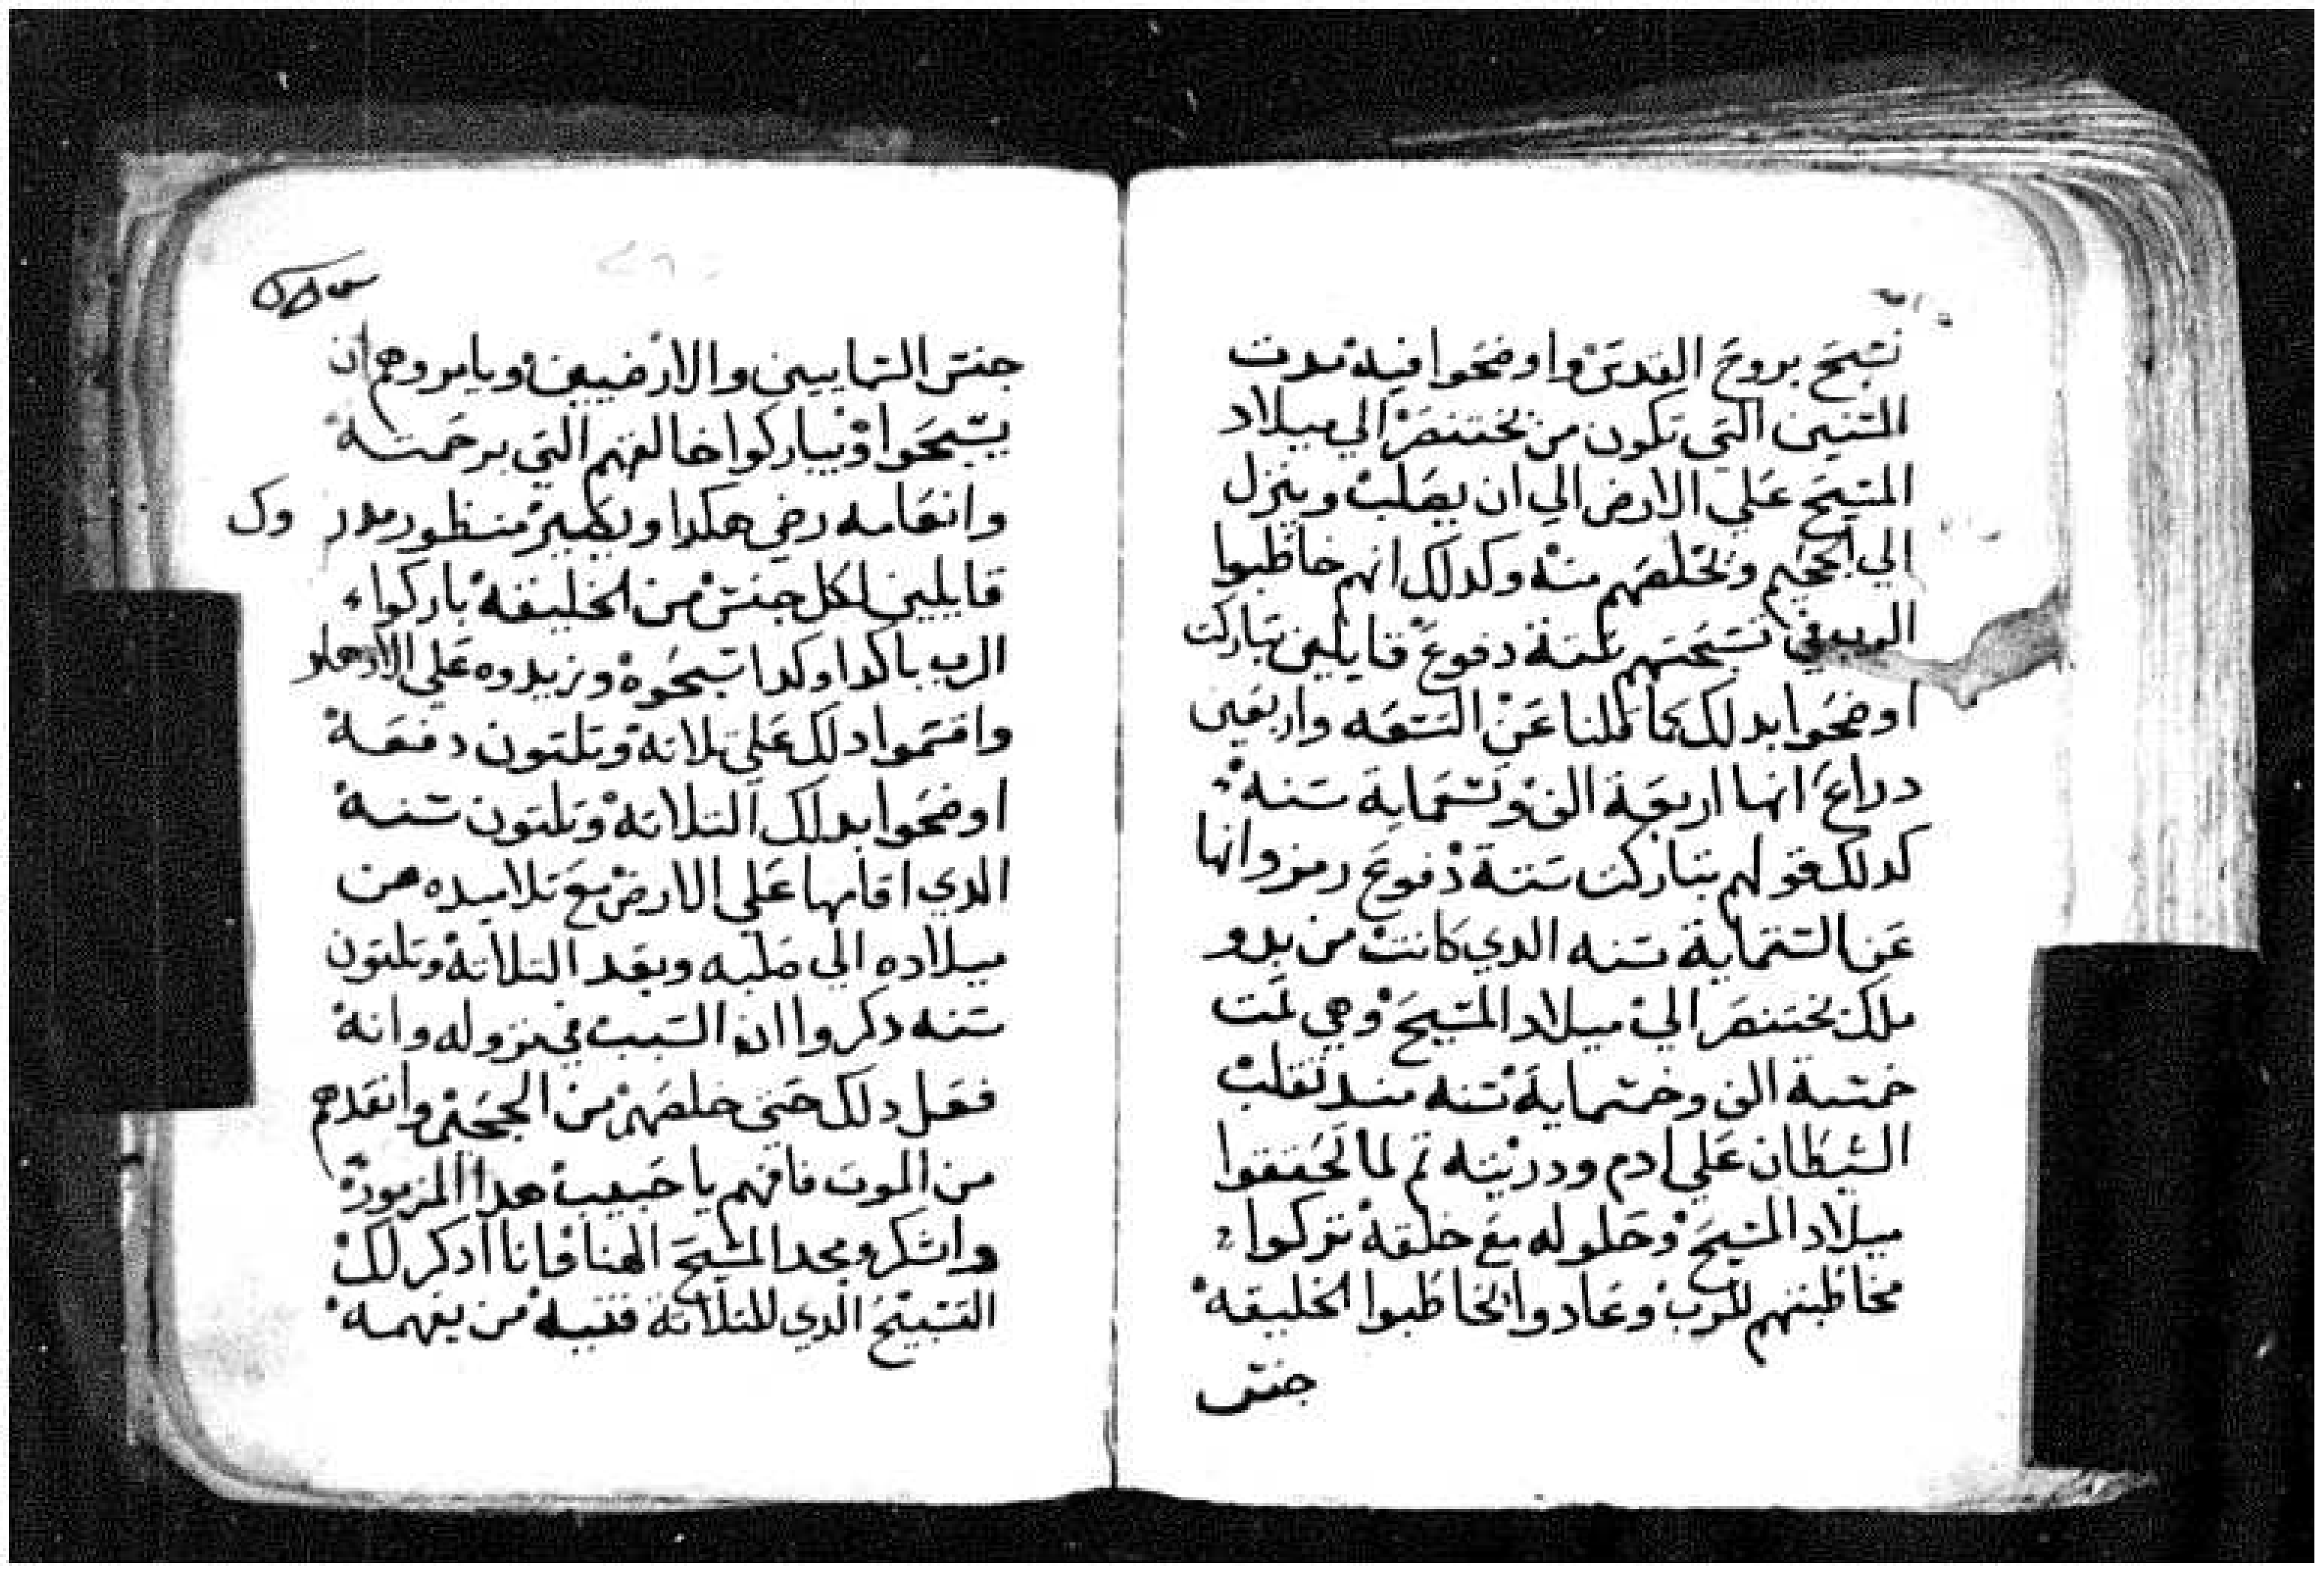 نسبح بروح القدس واوضحوا فيه مدت
السنين التي تكون من بختنصر الي ميلاد
المسيح علي الارض الي ان يصلب وينزل
الي الجحيم ويخلصهم منه وكدلك انهم خاطبوا
الرب في تسبحتهم ستة دفوع قايلين تباركت
اوضحوا بدلك كما قلنا عن التسعه واربعين
دراع انها اربعة الف وتسعماية سنه
كدلك قولهم تباركت ستة دفوع رمز وانها
عن الستماية سنه الدي كانت من بدو
ملك بختنصر الي ميلاد المسيح وهي تمت
خمسة الف وخمسماية سنه مند تغلب
الشيطان علي ادم ودريته تم لما تحققوا
ميلاد المسيح وحلوله مع خلقة تركوا
مخاطبتهم للرب وعادوا الخاطبوا الخليقه
جنس
جنس السمايين والارضيين ويامروهم ان
يسبحوا ويباركوا خالقهم التي برحمته
وانعامه رضي هكدا ويصير منظور
قايلين لكل جنس من الخليقة باركوا
الرب ياكدا وكدا سبحوه وزيدوه علي الادهار
واقسموا دلك علي تلاتة وتلتون دفعة
اوضحوا بدلك التلاتة وتلتون سنة
الدي اقامها علي الارض مع تلاميده من
ميلاده الي صلبه وبعد التلاتة وتلتون
سنه دكروا ان السبب في نزوله وانة
فعل دلك حتي خلصهم من الجحيم وانقدهم
من الموت فافهم يا حبيب هدا المزمور
واشكر ومجد المسيح الهنا فانا ادكر لك
التسبيح الدي للتلاتة فتية من يفهمه